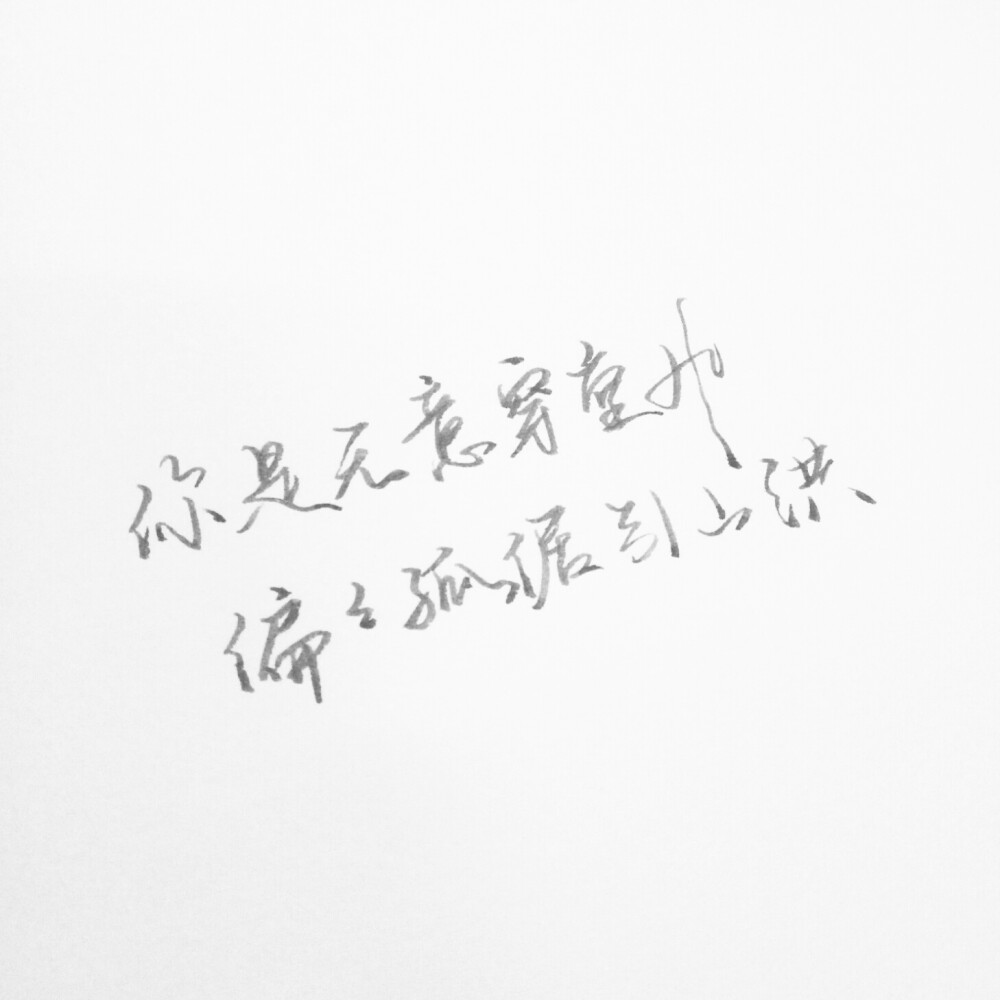 你是无意穿堂风
偏々孤倨引山洪